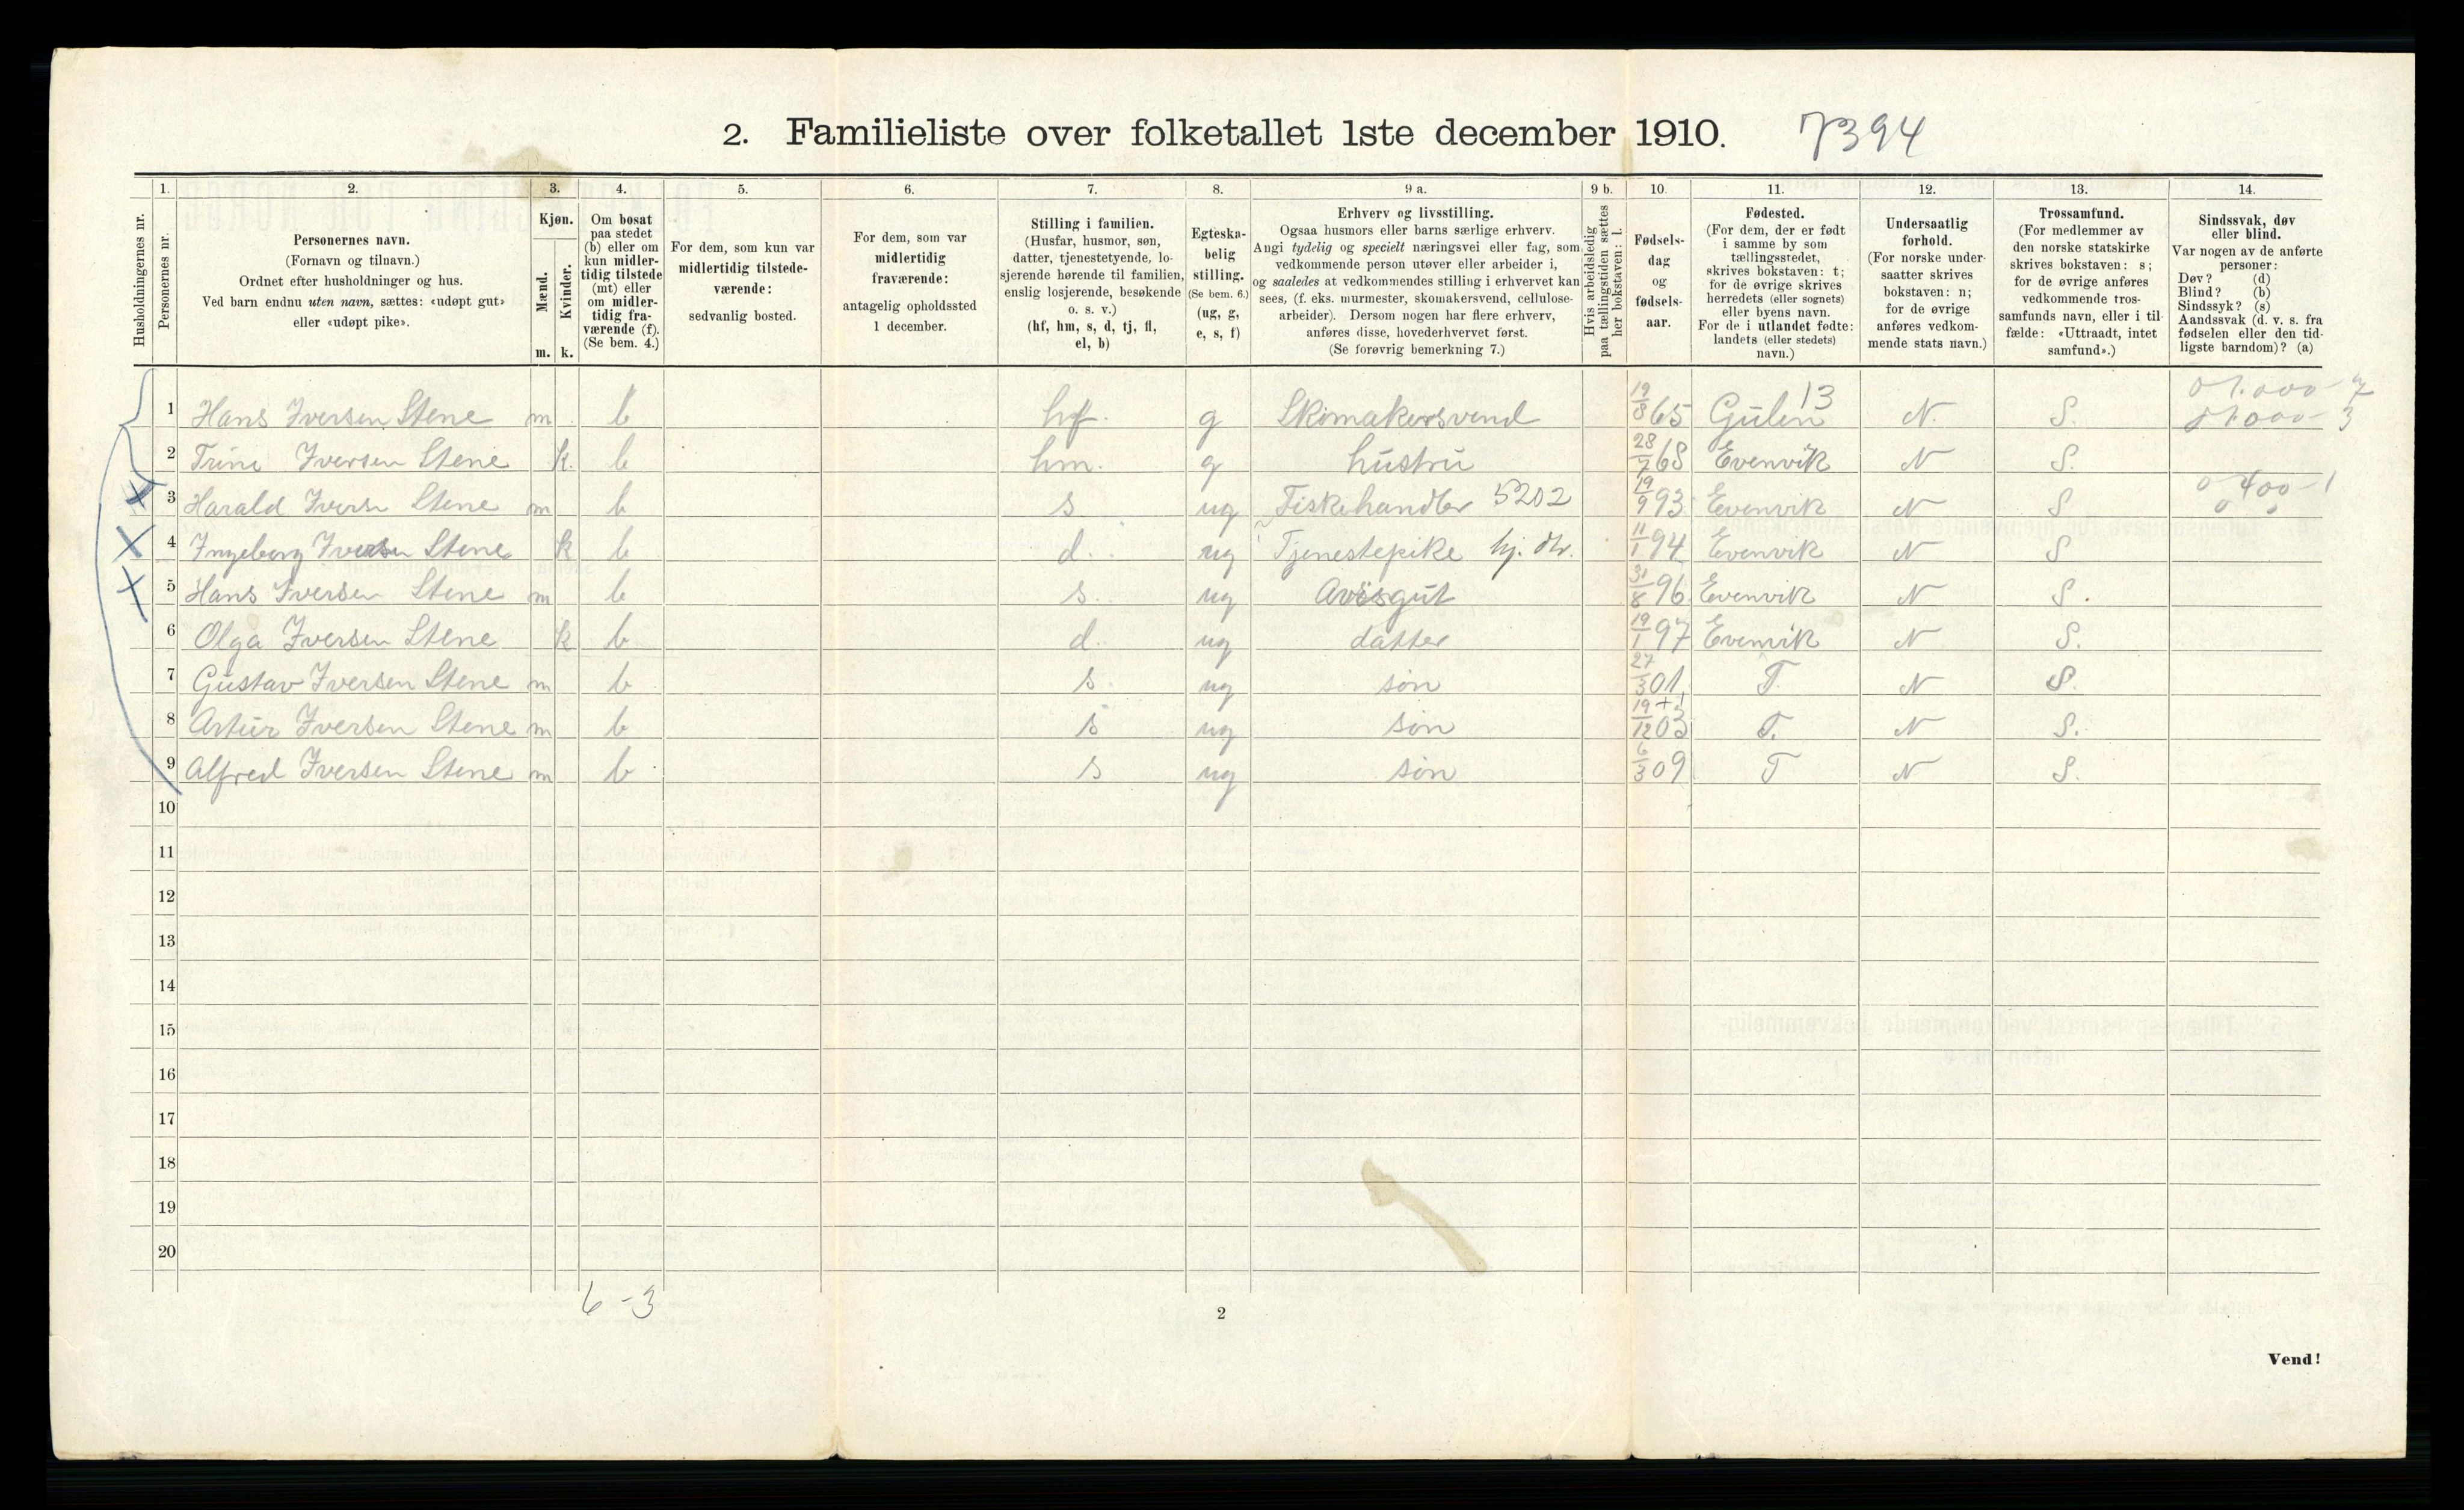 2. Familieliste over folketallet 1ste december 1910. 7394
Husholdningernes nr.
1. Personernes nr.
2. Personernes navn.
(Fornavn og tilnavn.)
Ordnet efter husholdninger og hus.
Ved barn endnu uten navn, sættes: «udøpt gut»
eller «udøpt pike».
3. Kjøn.
Mænd. m.
Kvinder. k.
4. Om bosat
paa stedet
(b) eller om
kun midler-
tidig tilstede
(mt) eller
om midler-
tidig fra-
værende (f).
(Se bem. 4.)
5. For dem, som kun var
midlertidig tilstede-
værende:
sedvanlig bosted.
6. For dem, som var
midlertidig
fraværende:
antagelig opholdssted
1 december.
7. Stilling i familien.
(Husfar, husmor, søn,
datter, tjenestetyende, lo-
sjerende hørende til familien,
enslig losjerende, besøkende
o. s. v.)
(hf, hm, s, d, tj, fl,
el, b)
8. Egteska-
belig
stilling.
(Se bem. 6.)
(ug, g,
e, s, f)
9 a. Erhverv og livsstilling.
Ogsaa husmors eller barns særlige erhverv.
Angi tydelig og specielt næringsvei eller fag, som
vedkommende person utøver eller arbeider i,
og saaledes at vedkommendes stilling i erhvervet kan
sees, (f. eks. murmester, skomakersvend, cellulose-
arbeider). Dersom nogen har flere erhverv,
anføres disse, hovederhvervet først.
(Se forøvrig bemerkning 7.)
9 b. Hvis arbeidsledig
paa tællingstiden sættes
her bokstaven: l.
10. Fødsels-
dag
og
fødsels-
aar.
11. Fødested.
(For dem, der er født
i samme by som
tællingsstedet,
skrives bokstaven: t;
for de øvrige skrives
herredets (eller sognets)
eller byens navn.
For de i utlandet fødte:
landets (eller stedets)
navn.)
12. Undersaatlig
forhold.
(For norske under-
saatter skrives
bokstaven: n;
for de øvrige
anføres vedkom-
mende stats navn.)
13. Trossamfund.
(For medlemmer av
den norske statskirke
skrives bokstaven: s;
for de øvrige anføres
vedkommende tros-
samfunds navn, eller i til-
fælde: «Uttraadt, intet
samfund».)
14. Sindssvak, døv
eller blind.
Var nogen av de anførte
personer:
Døv? (d)
Blind? (b)
Sindssyk? (s)
Aandssvak (d. v. s. fra
fødselen eller den tid-
ligste barndom)? (a)
1 Hans Iversen Stene m b hf. g Skomakersvend 19/8 65 Gulen 13 N. S.
2 Trine Iversen Stene k. b hm. g hustru 28/7 68 Evenvik N S.
3 Harald Iversn Stene m b s ug Fiskehandler 5202 19/9 93 Evenvik N S
4 Ingeborg Iversen Stene k b d. ug Tjenestepike hj. dtr. 11/1 94 Evenvik N S
5 Hans Iversen Stene m b s. ug Avisgut 31/8 96 Evenvik N S.
6 Olga Iversen Stene k b d. ug datter 19/1 97 Evenvik N S.
7 Gustav Iversen Stene m b s. ug søn 27/3 01 T. N S.
8 Artur Iversen Stene m b s ug søn 19/12 03 T. N S.
9 Alfred Iversen Stene m b s ug søn 6/3 09 T N S.
10
11
12
13
14
15
16
17
18
19
20
6 - 3
2
Vend!